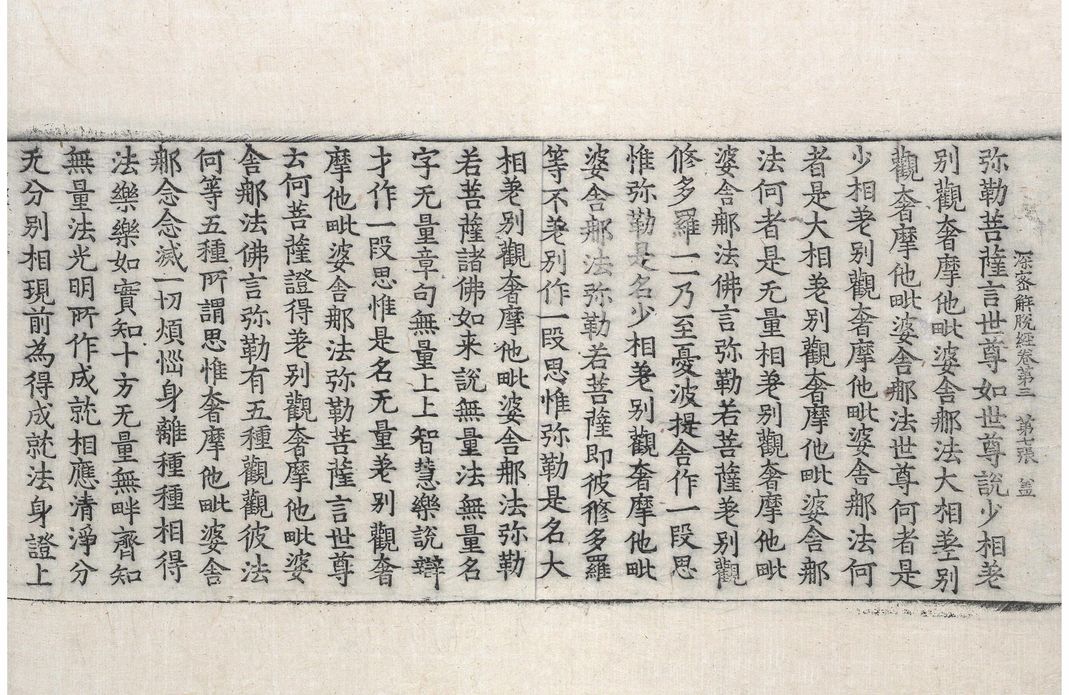 深密解脫經卷第三　第七張　盖
弥勒菩薩言世尊如世尊說少相差
別觀奢摩他毗婆舍𨚗法大相差別
觀奢摩他毗婆舍𨚗法世尊何者是
少相差別觀奢摩他毗婆舍𨚗法何
者是大相差別觀奢摩他毗婆舍𨚗
法何者是无量相差別觀奢摩他毗
婆舍𨚗法佛言弥勒若菩薩差別觀
修多羅一一乃至憂波提舍作一段思
惟弥勒是名少相差別觀奢摩他毗
婆舍𨚗法弥勒若菩薩即彼修多羅
等不差別作一段思惟弥勒是名大
相差別觀奢摩他毗婆舍𨚗法弥勒
若菩薩諸佛如来說無量法無量名
字无量章句無量上上智慧樂說辯
才作一段思惟是名无量差別觀奢
摩他毗婆舍𨚗法弥勒菩薩言世尊
云何菩薩證得差別觀奢摩他毗婆
舍𨚗法佛言弥勒有五種觀觀彼法
何等五種所謂思惟奢摩他毗婆舍
𨚗念念滅一切煩惱身離種種相得
法樂樂如實知十方无量無畔齊知
無量法光明所作成就相應清淨分
无分別相現前為得成就法身證上